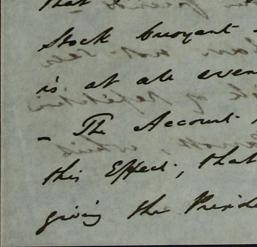 that
Stock buoyant -
is at all even
- The Account
this Effect; that
giving the Presid